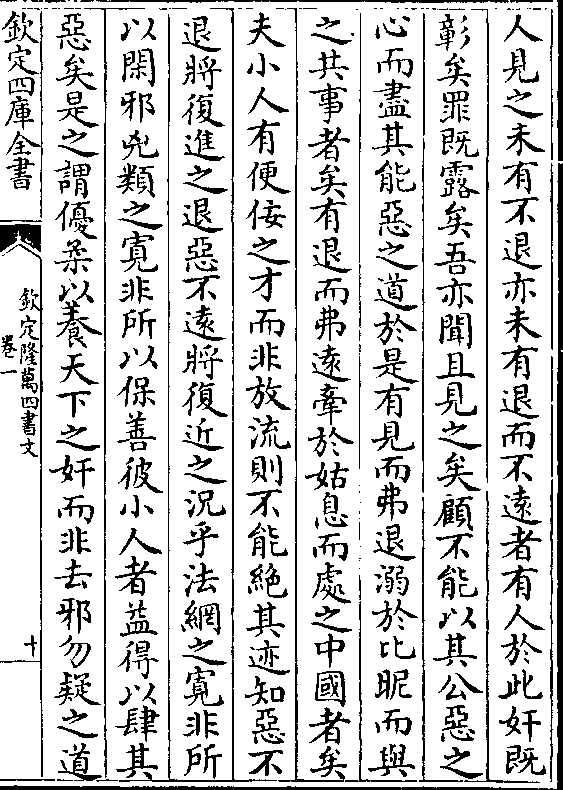 人見之未有不退亦未有退而不遠者有人於此奸既
彰矣罪既露矣吾亦聞且見之矣顧不能以其公惡之
心而盡其能惡之道於是有見而弗退溺於比昵而與
之共事者矣有退而弗遠牽於姑息而處之中國者矣
夫小人有便佞之才而非放流則不能絶其迹知惡不
退將復進之退惡不遠將復近之況乎法網之寛非所
以閑邪兇類之寛非所以保善彼小人者益得以肆其
惡矣是之謂優柔以養天下之奸而非去邪勿疑之道
欽定四庫全書
欽定隆萬四書文
卷一
十